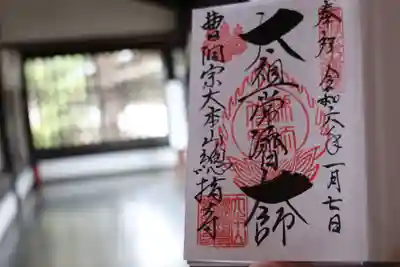 奉拝 令和六年一月七日
太祖常濟大師
曹洞宗大本山總持寺